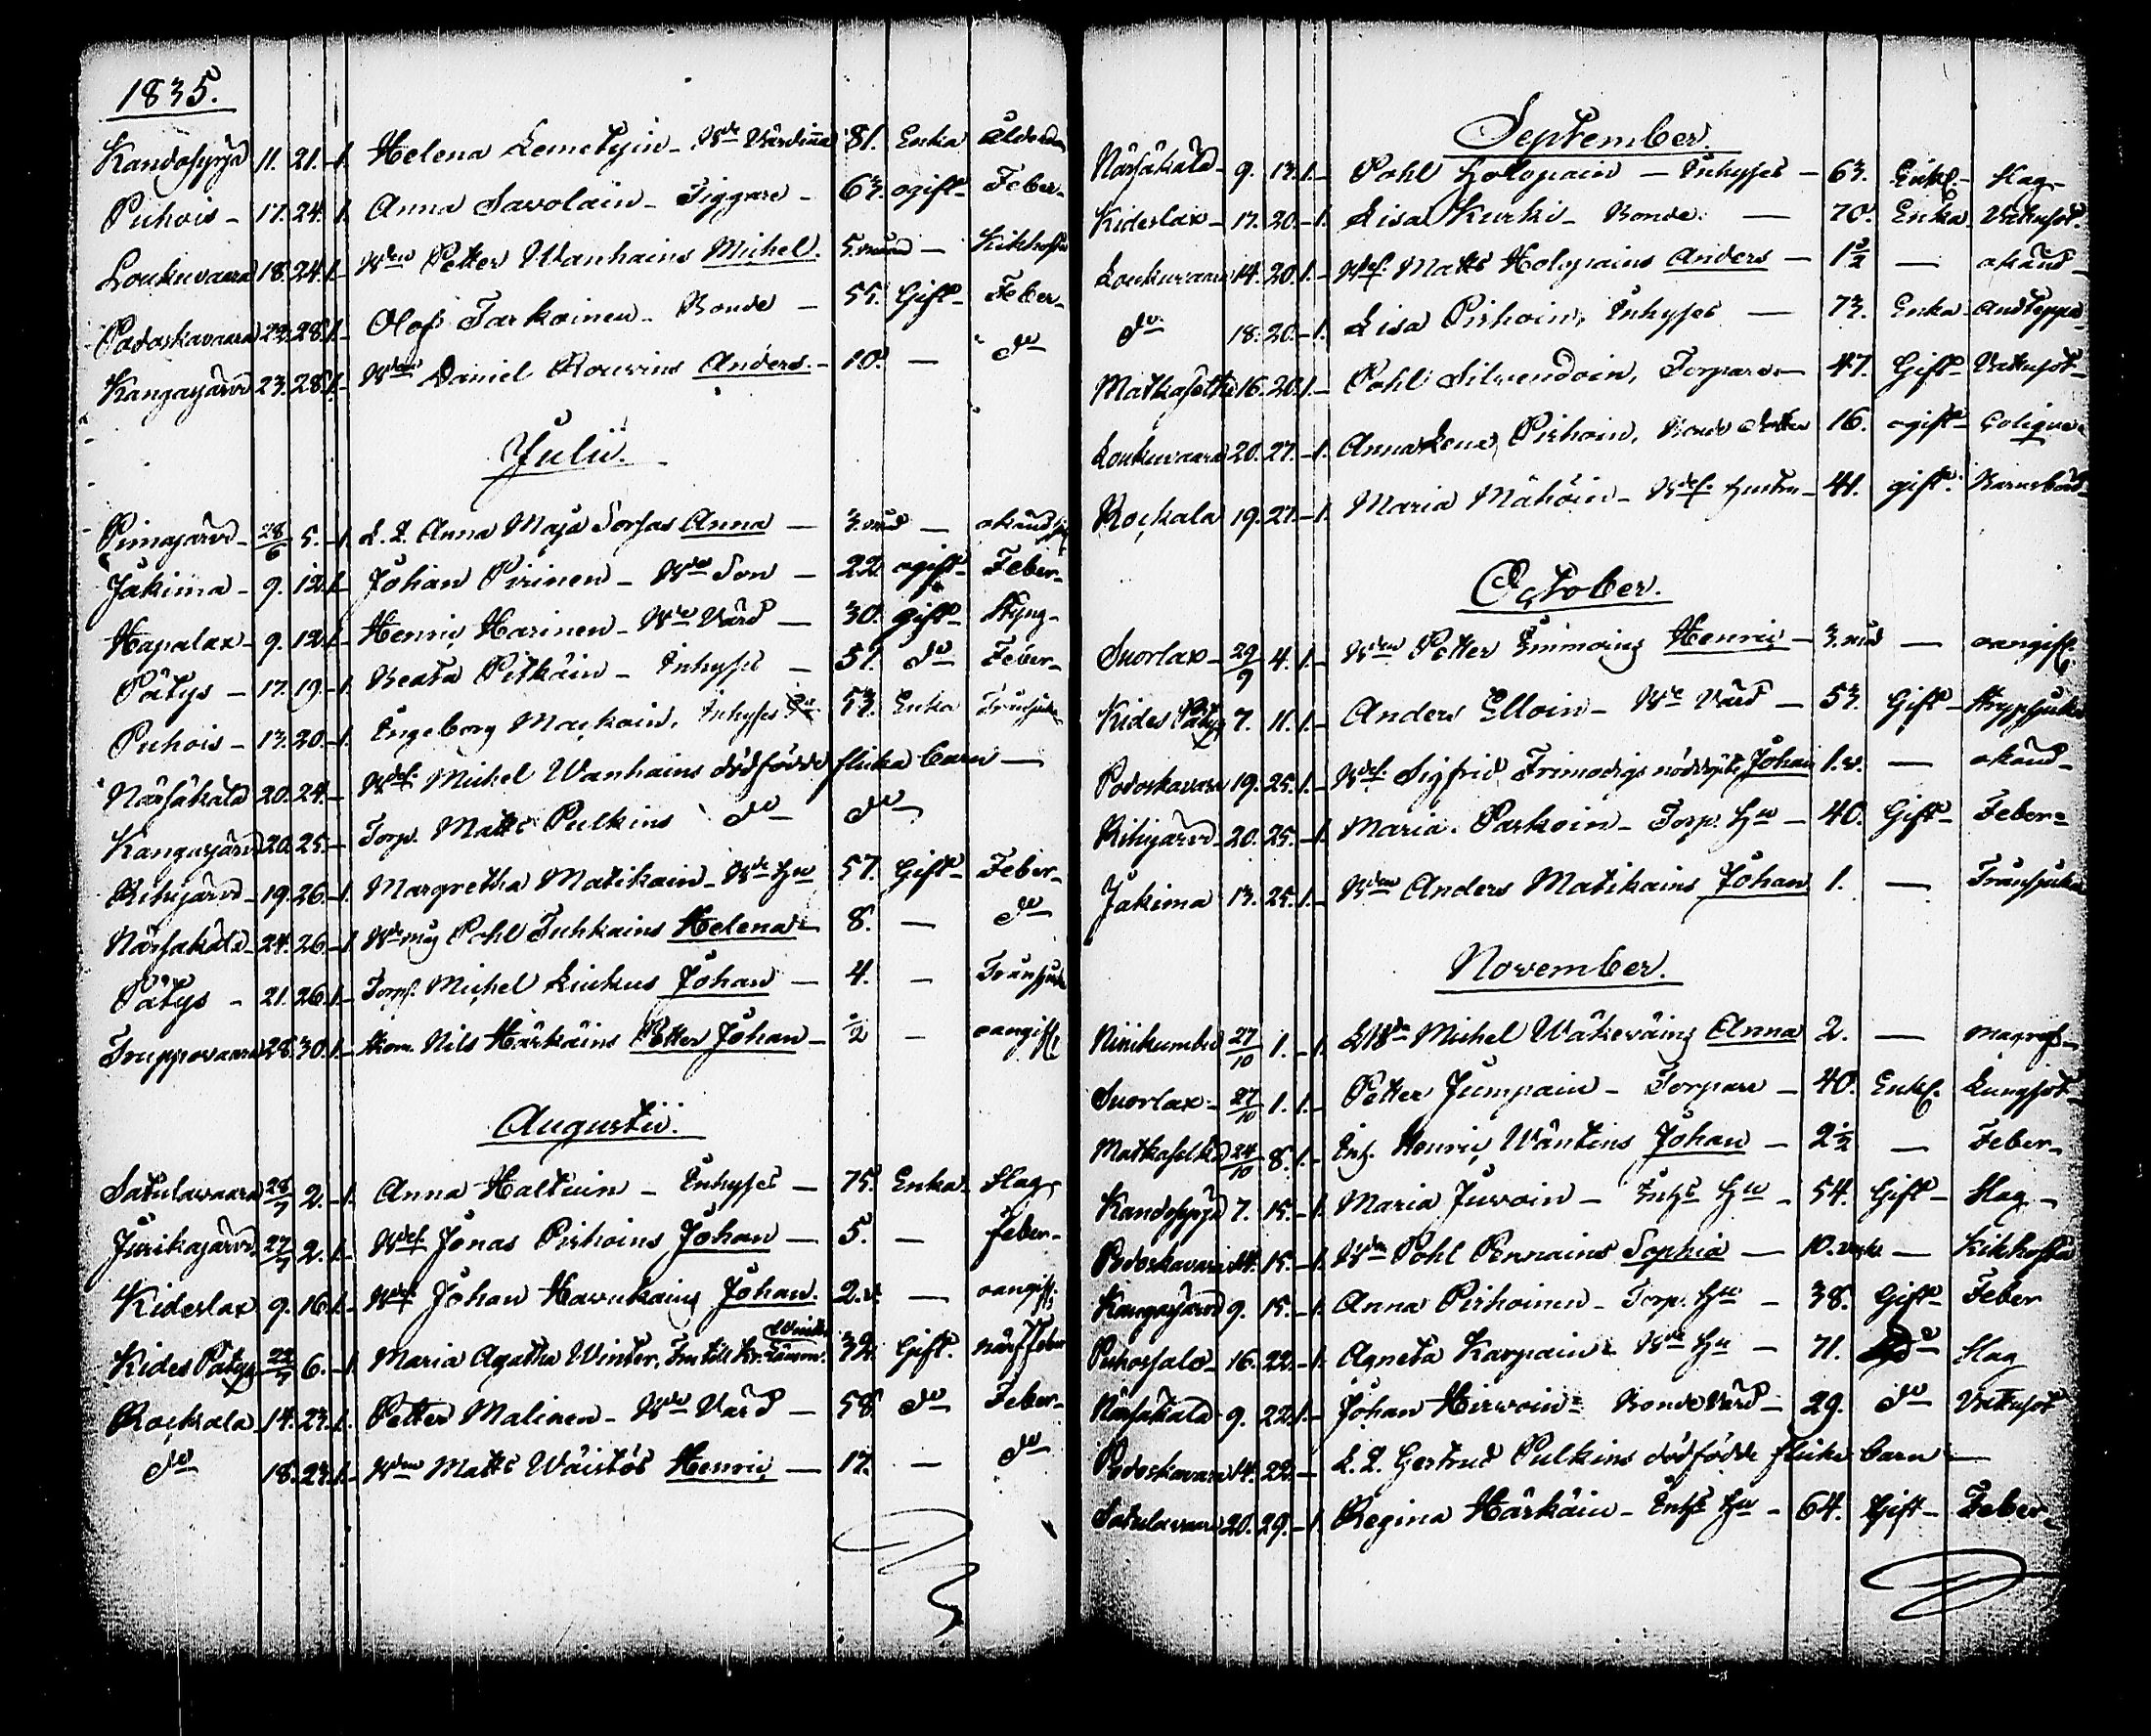 1835.
Kandosyrjä 11. 21. - 1. Helena Lemetyin - Bde Värdinna 81. Enka Ålderdom
Puhois - 17. 24. 1. Anna Savolain - Tiggare - 63. ogift - Feber -
Loukuvaara 18. 24. 1 - Bdem Petter Wanhains Michel. 5. mån - Kikhosta
Podoskavaara 22. 28. 1 - Olof Tarkoinen - Bonde - 55. Gift - Feber -
Kangasjärvi 23. 28. 1 - Daniel Rouvins Anders. - 10. - do
Julii.
Pimäjärvi - 28/6 5. - 1. L. L. Anna Maja Sorsas Anna - 3. mån - okänd
Jakima - 9. 12. 1 - Johan Pirinen - Bde Son - 22. ogift - Feber -
Hapalax - 9. 12. 1 - Henric Harinen - Bde Värd - 30. gift - Styng -
Pätys - 17. 19. - 1. Beata Pitkäin - Inhyses - 51. do Feber -
Puhois - 13. 20. - 1. Ingeborg Mackoin, Inhyses 53. Enka Trånsjuka
Närsäkälä 20. 24. - Bdes. Michel Wanhains dödfödde flicka barn -
Kangasjärvi 20. 25. - Torp. Matts Pulkins do do
Rihijärvi - 19. 26. - 1. Margretha Matikain - Bde Hu 57. Gift - Feber -
Närsäkälä - 24. 26. - 1. Bdemåg Pohl Tuhkains Helena - 8. - do
Pätys - 21. 26. 1. - Torp. Michel Kiukus Johan - 4. - Trånsjuka
Truppovaara 28. 30. 1. - Nils Härkäins Petter Johan - 1/2 - oangift
Augustii.
Satulavaara 28/7 2. - 1. Anna Haltuin - Inhyses - 75. Enka - Slag
Juurikajärvi 27/7 2. 1. - Bdes. Jonas Pirhoins Johan - 5. - feber -
Kideslax 9. 16. 1. - Bdes. Johan Havukains Johan. 2. v. - oangift.
Kides Pätys 6. - 1. Maria Agatha Winter, Fru till Kr. Länsm. 32. Gift. närffeber
Rockala 14. 23. 1. Petter Malinen - Bde Värd - 58. do Feber -
do 18. 23. 1. - Bdem Matts Wäistös Henric - 17. - do
September.
Närsäkälä - 9. 13. 1. - Pohl Holopain - Inhyses - 63. Enkl. - Slag -
Kideslax - 17. 20. - 1. Lisa Kurki - Bonde. - 70. Enka - Vattusot.
Loukuvaara 14. 20. 1. - Bdes. Matts Holopains Anders - 1 1/2 - okänd -
do 18. 20. - 1. Lisa Pirhoin, Inhyses - 73. Enka - Andteppa
Matkaselkä 16. 20. 1. - Pohl Silvendoin, Torpare - 47. Gift - Vattusot -
Loukuvaara 20. 27. - 1. Anna Lena Pirhoin, Bonde dotter 16. ogift - Colique
Rockala 19. 27. - 1. Maria Mähöin - Bdes. hustru - 41. gift. Barnsbörd
October.
Suorlax - 29/9 4. 1. - Bdem Petter Immoins Henric - 3. mån - oangift.
Kides Pätys 7. 11. 1. - Anders Elloin - Bde Värd - 53. Gift - Strypsjuka
Podoskavaara 19. 25. 1. - Bdes. Sigfrid Frimodigs nöddöpte Johan 1. v. - okänd -
Rihijärvi - 20. 25. - 1. Maria Parkoin - Torp. Hu - 40. Gift - Feber -
Jakima 13. 25. 1. - Bdem Anders Matikains Johan 1. - Trånsjuka
November.
Niinikumbu 27/10 1. - 1. Michel Wäkeväins Anna 2. - magref -
Suorlax - 27/10 1. 1. - Petter Jumpain - Torpare - 40. Enkl. Lungsot
Matkaselkä 24/10 8. 1. - Inh. Henric Wäntins Johan - 2 1/2 - Feber -
Kandosyrjä 7. 15. - 1. Maria Juvoin - Inhs Hu - 54. Gift - Slag -
Podoskavaara 14. 15. - 1. Bdem Pohl Pennains Sophia - 10. veck - Kikhosta
Kangasjärvi 9. 15. - 1. Anna Pirhoinen - Torp. Hu - 38. Gift - Feber
Puhossalo - 16. 22. - 1. Agneta Karpain - Bde Hu - 71. do Slag
Närsäkälä - 9. 22. 1. - Johan Hirvoin - Bonde Värd - 29. do Vattusot
Podoskavaara 14. 22. - L. L. Gertrud Pulkins dödfödde flicke barn -
Satulavaara 20. 29. - 1. Regina Härkäin - Inhs Hu - 64. Gift - Feber -